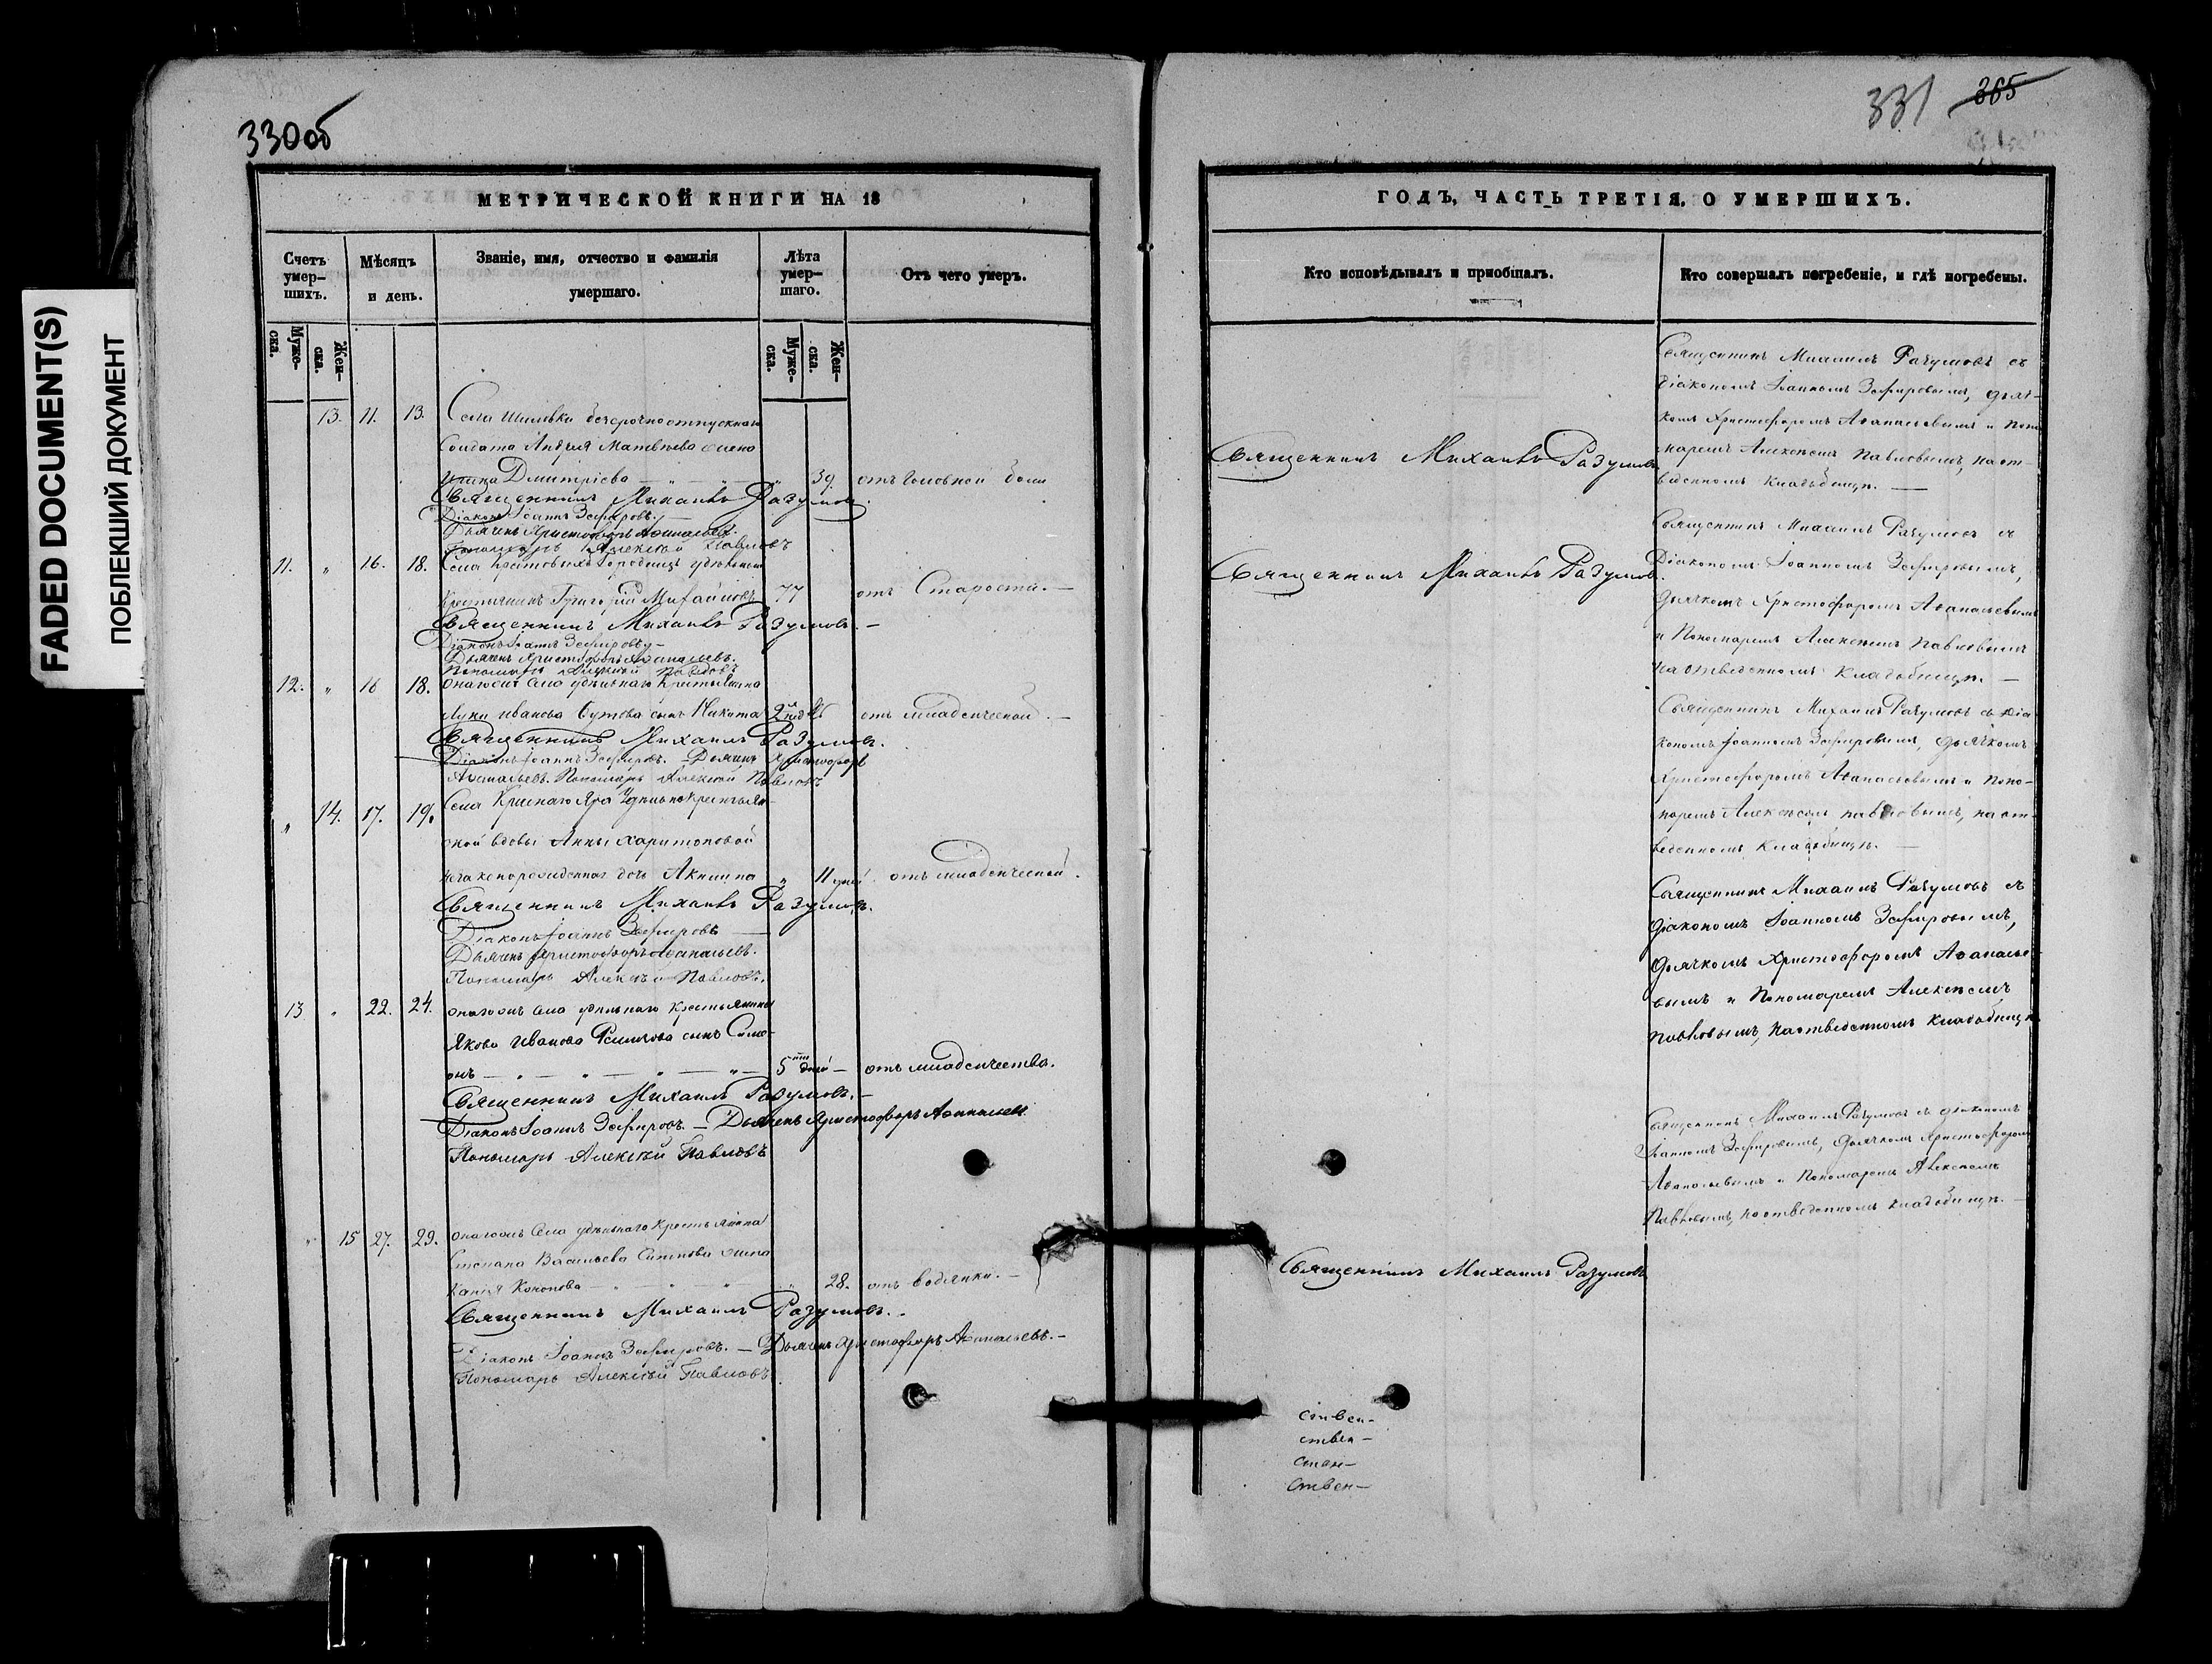 FADED DOCUMENT(S)
ПОБЛЕКШИЙ ДОКУМЕНТ
330об
МЕТРИЧЕСКОЙ КНИГИ НА 18
Счетъ умер-
шихъ.
Мѣсяцъ
и день.
Званіе, имя, отчество и фамилія
умершаго.
Лѣта
умер-
шаго.
Отъ чего умеръ.
Муже-
ска.
Жен-
ска.
Муже-
ска.
Жен-
ска.
13. 11. 13. Села Шиловки безсрочноотпускнаго
Солдата Андрея Матвѣева жена
Дмитріева 39. отъ головной боли
Священникъ Михаилъ Разумовъ
Діаконъ Іоаннъ Зефировъ.
Дьячекъ Христофоръ Аѳанасьевъ.
Пономарь Алексѣй Павловъ
11. " 16. 18. Села Городищъ удѣльный
Крестьянинъ Григорій Михайловъ 77 отъ Старости. —
Священникъ Михаилъ Разумовъ. —
Діаконъ Іоаннъ Зефировъ —
Дьячекъ Христофоръ Аѳанасьевъ.
Пономарь Алексѣй Павловъ
12. " 16 18. онагожъ села удѣльнаго Крестьянина
Луки Иванова сынъ Никита 2 отъ младенческой. —
Священникъ Михаилъ Разумовъ.
Діаконъ Іоаннъ Зефировъ. Дьячекъ Христофоръ
Аѳанасьевъ. Пономарь Алексѣй Павловъ
" 14. 17. 19. Села Краснаго Яра Удѣльной крестьян-
ской вдовы Анны Харитоновой
незаконорожденная дочь Акилина " 11 дней отъ младенческой.
Священникъ Михаилъ Разумовъ.
Діаконъ Іоаннъ Зефировъ —
Дьячекъ Христофоръ Аѳанасьевъ.
Пономарь Алексѣй Павловъ.
13 " 22. 24. онагожъ села удѣльнаго крестьянина
Якова Иванова сынъ Симе-
онъ — " — " — " — " — 5 дней — отъ младенчества.
Священникъ Михаилъ Разумовъ. —
Діаконъ Іоаннъ Зефировъ. — Дьячекъ Христофоръ Аѳанасьевъ
Пономарь Алексѣй Павловъ
" 15 27. 29. онагожъ села удѣльнаго крестьянина
Степана Васильева жена
Кононова 28. отъ водянки. —
Священникъ Михаилъ Разумовъ. —
Діаконъ Іоаннъ Зефировъ. — Дьячекъ Христофоръ Аѳанасьевъ. —
Пономарь Алексѣй Павловъ
331 365
ГОДЪ, ЧАСТЬ ТРЕТІЯ, О УМЕРШИХЪ.
Кто исповѣдывалъ и пріобщалъ.
Кто совершалъ погребеніе, и гдѣ погребены.
Священникъ Михаилъ Разумовъ
Священникъ Михаилъ Разумовъ.
Священникъ Михаилъ Разумовъ
ствен-
ствен-
ствен-
Священникъ Михаилъ Разумовъ съ
діакономъ Іоанномъ Зефировымъ, дьяч-
комъ Христофоромъ Аѳанасьевымъ и Поно-
маремъ Алексѣемъ Павловымъ, на от-
веденномъ кладбищѣ. —
Священникъ Михаилъ Разумовъ съ
Діакономъ Іоанномъ Зефировымъ,
дьячкомъ Христофоромъ Аѳанасьевымъ
и Пономаремъ Алексѣемъ Павловымъ
на отведенномъ Кладбищѣ. —
Священникъ Михаилъ Разумовъ съ діа-
кономъ Іоанномъ Зефировымъ, дьячкомъ
Христофоромъ Аѳанасьевымъ и Поно-
маремъ Алексѣемъ Павловымъ, на от-
веденномъ Кладбищѣ. —
Священникъ Михаилъ Разумовъ съ
діакономъ Іоанномъ Зефировымъ,
дьячкомъ Христофоромъ Аѳанасье-
вымъ и Пономаремъ Алексѣемъ
Павловымъ, на отведенномъ кладбищѣ
Священникъ Михаилъ Разумовъ съ діакономъ
Іоанномъ Зефировымъ, дьячкомъ Христофоромъ
Аѳанасьевымъ и Пономаремъ Алексѣемъ
Павловымъ, на отведенномъ кладбищѣ. —